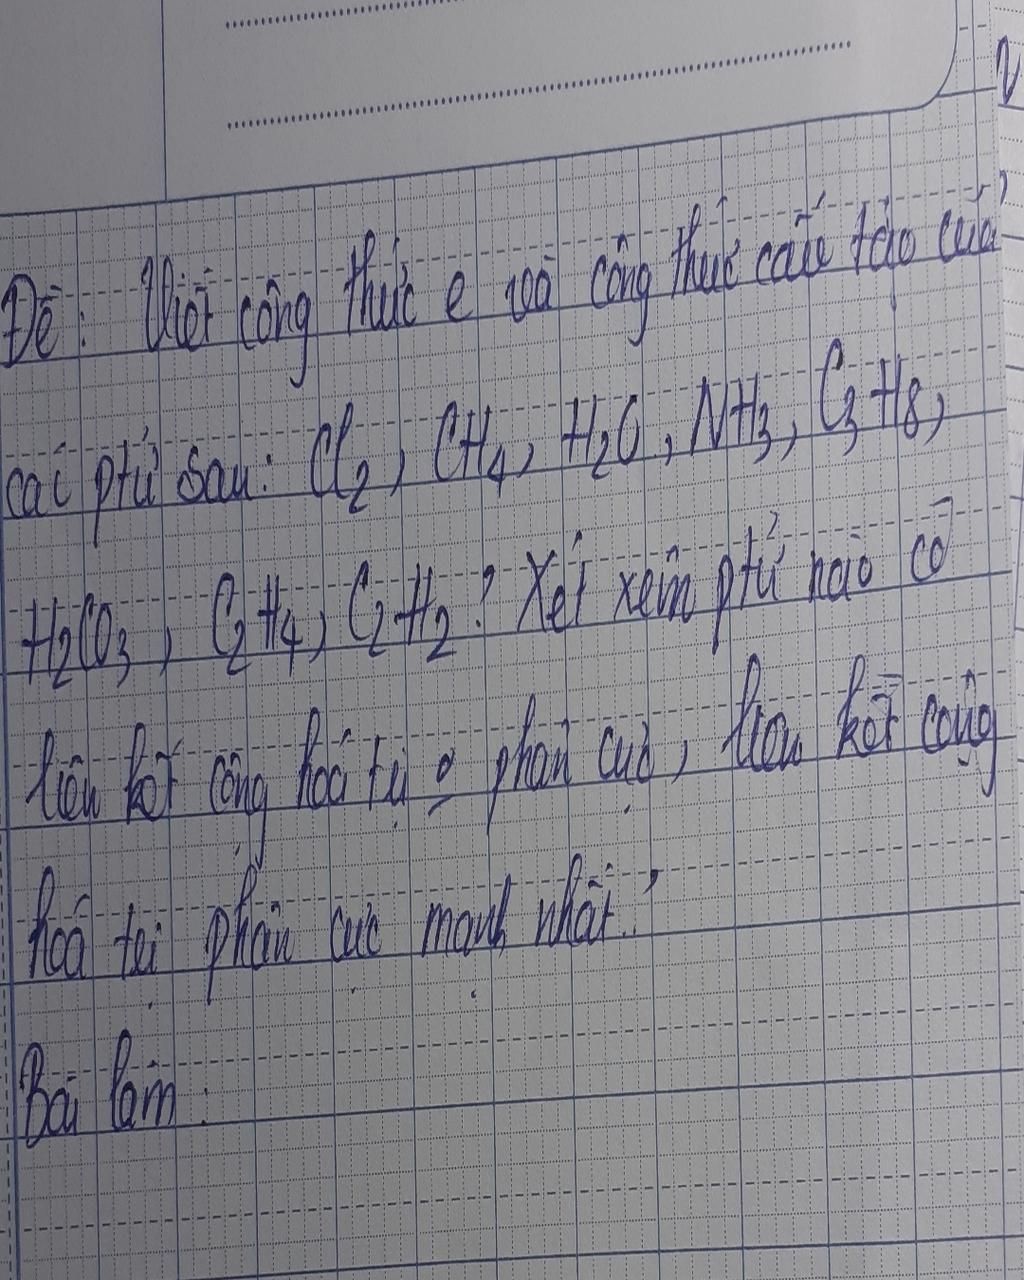 Đề: Viết công thức e và công thức cấu tạo của
các ptử sau: Cl2, CH4, H2O, NH3, C3H8,
H2CO3, C2H4, C2H2? Xét xem ptử nào có
liên kết cộng hoá tri o phân cực, liên kết cộng
hoá tri phân cực mạnh nhất?
Bài làm: